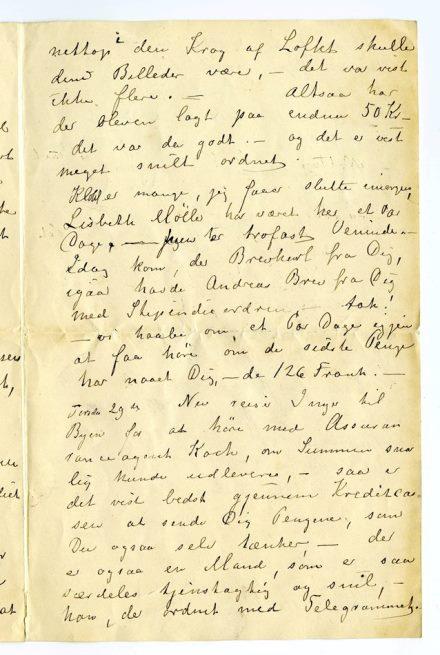 nettop i den Krog af Loftet skulle
dine Billeder være, – det va vist
ikke flere. – Altsaa har
der bleven lagt paa endnu 50 Kr –
det var da godt. – og det er vist
meget snilt ordnet.
Kl. er mange, jeg faaer slutte imorgen,
Lisbeth Mölle har været her et Par
Dage, – hun er trofast Veninde –
Idag kom, de Brevkort fra Dig,
igaa havde Andreas Brev fra Dig
med Stipendieordren – tak!
– vi haabe om, et Par Dage igjen
at faa höre om de sidste Penge
har naaet Dig, – de 126 Frank. –
Torsdag 29de Nu reise Inge til
Byen for at höre med Assuran
ceagent Koch, om Summen sna
lig kunde udleveres, – saa er
det vist bedst gjennem Kreditcas
sen at sende Dig Pengene, som
Du ogsaa selv tænker, – der
er ogsaa en Mand, som er saa
særdeles tjenstagtig og snil, –
han, de ordnet med Telegrammet. –